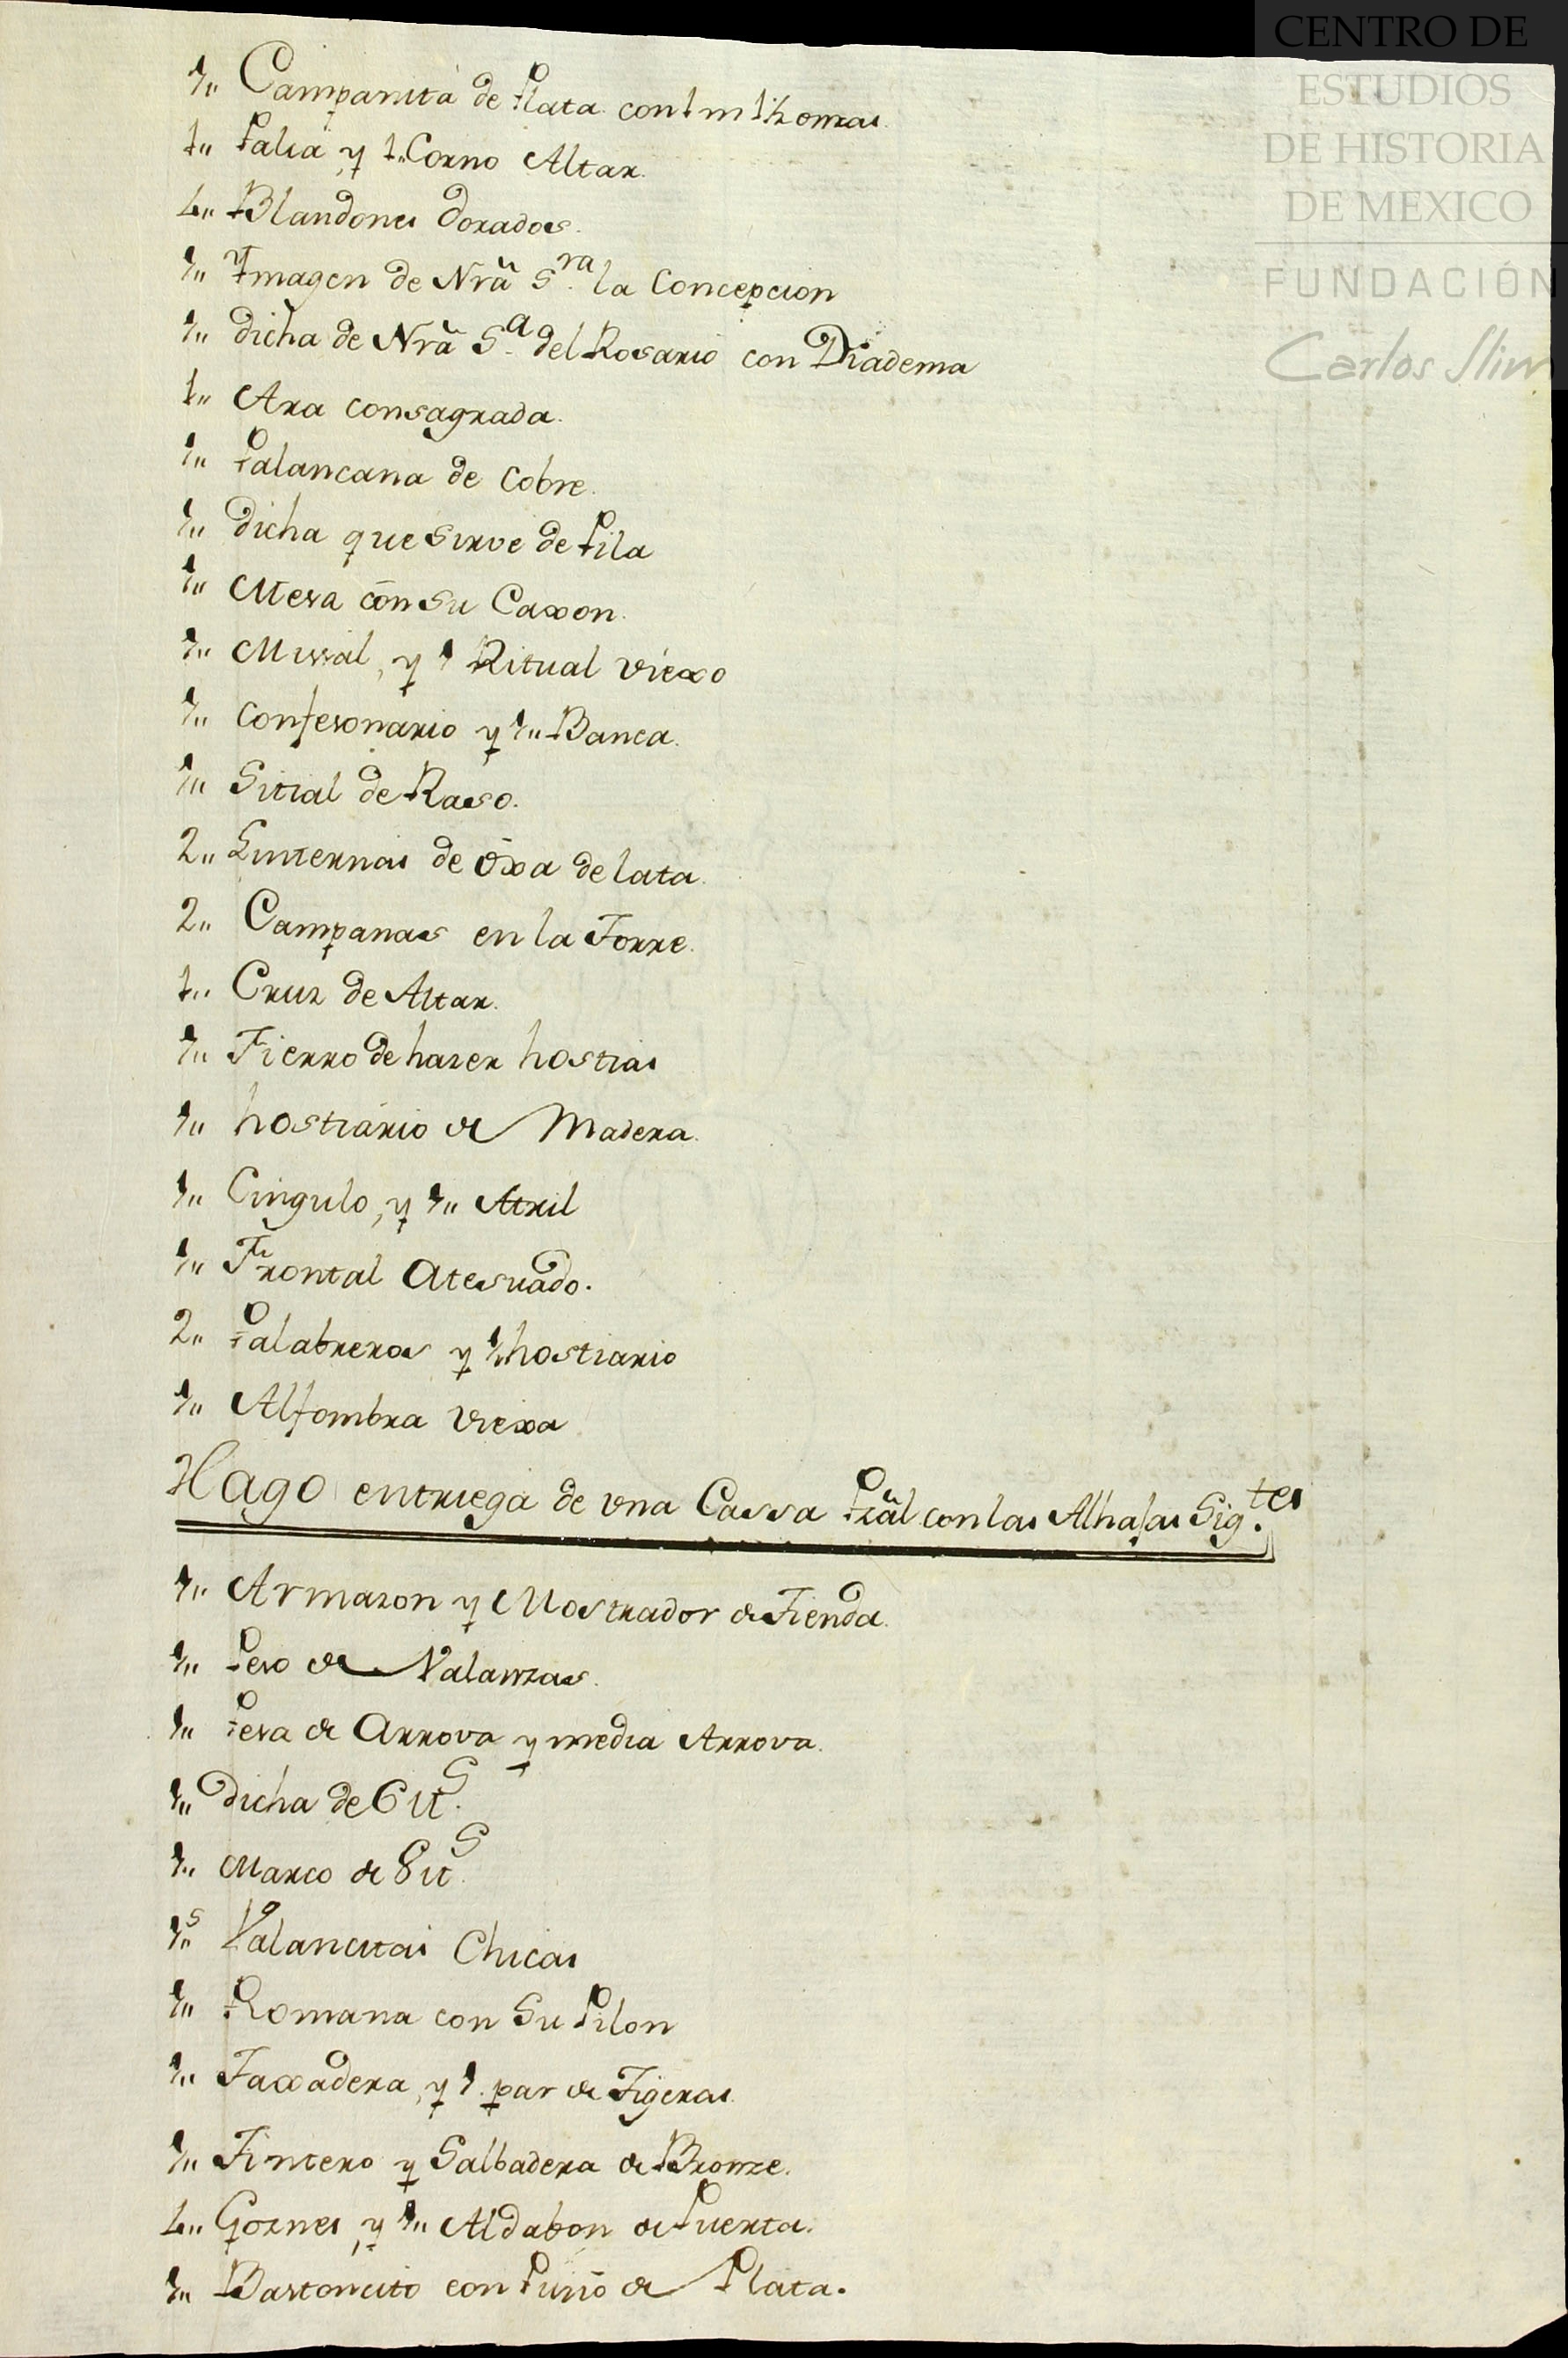 CENTRO DE
ESTUDIOS
DE HISTORIA
DE MEXICO
FUNDACIÓN
Carlos Slim
1,, Campanita de Plata con 1 m 1½ onzas
1,, Palia y 1,, Corno Altar.
4,, Blandones dorados.
1,, Ymagen de Nrã S.ra la Concepcion
1,, dicha de Nrã S.a del Rosario con Diadema
1,, Ara consagrada.
1,, Palancana de Cobre.
1,, dicha que Sirve de Pila
1,, Mesa con Su Caxon.
1,, Missal, y 1 Ritual viexo
1,, Confesonario y 1,, Banca.
1,, Sitial de Raso.
2,, Linternas de oxa de lata.
2,, Campanas en la Torre.
1,, Cruz de Altar.
1,, Fierro de hazer hostias
1,, hostiario de Madera.
1,, Cingulo, y 1,, Atril
1,, Frontal Atesuado.
2,, Palabreros y 1,, hostiario
1,, Alfombra viexa
Hago entriega de vna Cassa Pzãl con las Alhajas Sig.tes
1,, Armazon y Mostrador de Tienda.
1,, Peso de Valanzas.
1,, Pesa de Arrova y media Arrova.
1,, Dicha de 6 lt.s
1,, Marco de 8 lt.s
1,,s Valancitas Chicas
1,, Romana con Su Pilon
1,, Taxadera, y 1. par de Tigeras.
1,, Tintero y Salbadera de Bronze.
4,, Goznes, y 1,, Aldabon de Puerta.
1,, Bastoncito con Puño de Plata.